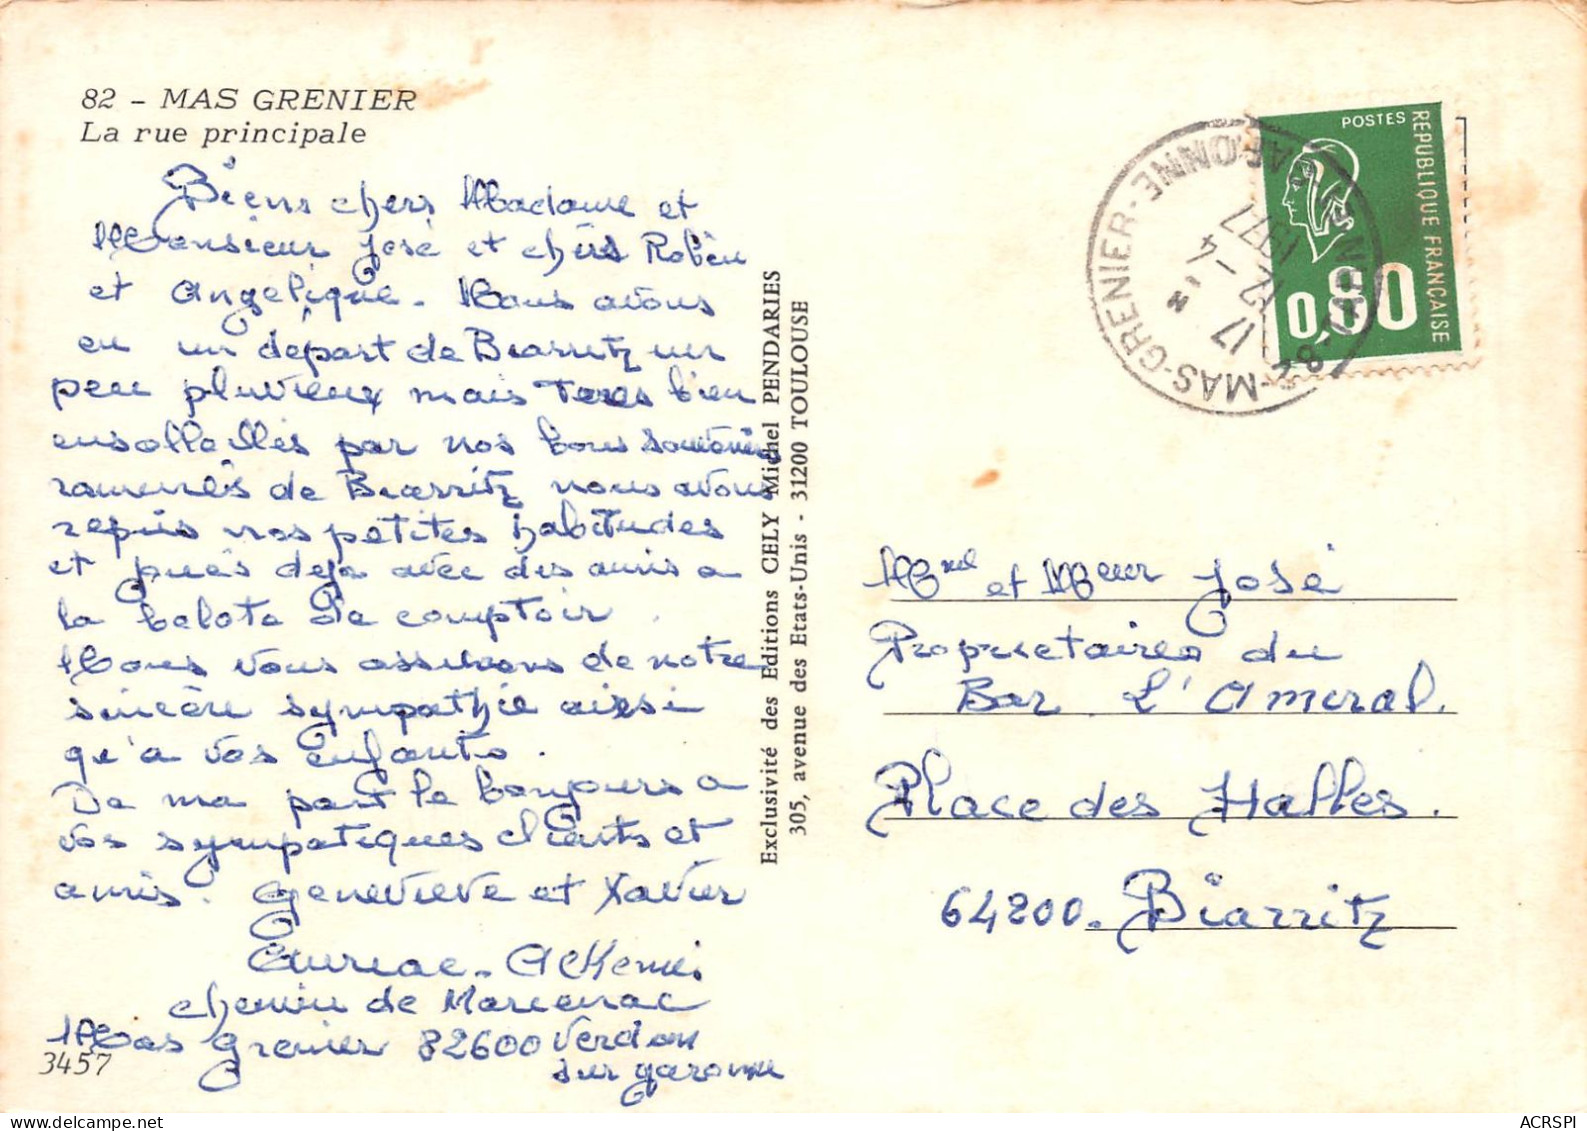 82 - MAS GRENIER
La rue principale
Biens chers Madame et
Monsieur José et chers Robin
et Angelique. Nous avons
eu un départ de Biarritz un
peu pluvieux mais bien
ensolleillés par nos bons souvenirs
ramenés de Biarritz nous avons
repris nos petites habitudes
et puis deja avec des amis a
la belote de comptoir.
Nous vous assurons de notre
sincère sympathie ainsi
qu'a vos enfants.
De ma part le bonjours a
vos sympatiques clients et
amis. Genevieve et Xavier
chemin de
Mas Grenier 82600 Verdun
sur garonne
3457
Exclusivité des Editions CELY Michel PENDARIES
305, avenue des Etats-Unis - 31200 TOULOUSE
POSTES
REPUBLIQUE FRANÇAISE
0,80
82-MAS-GRENIER-
GARONNE
17 H
12-4
1977
et José
Proprietaires du
Bar L'Amiral.
Place des Halles.
64200. Biarritz
ACRSPI